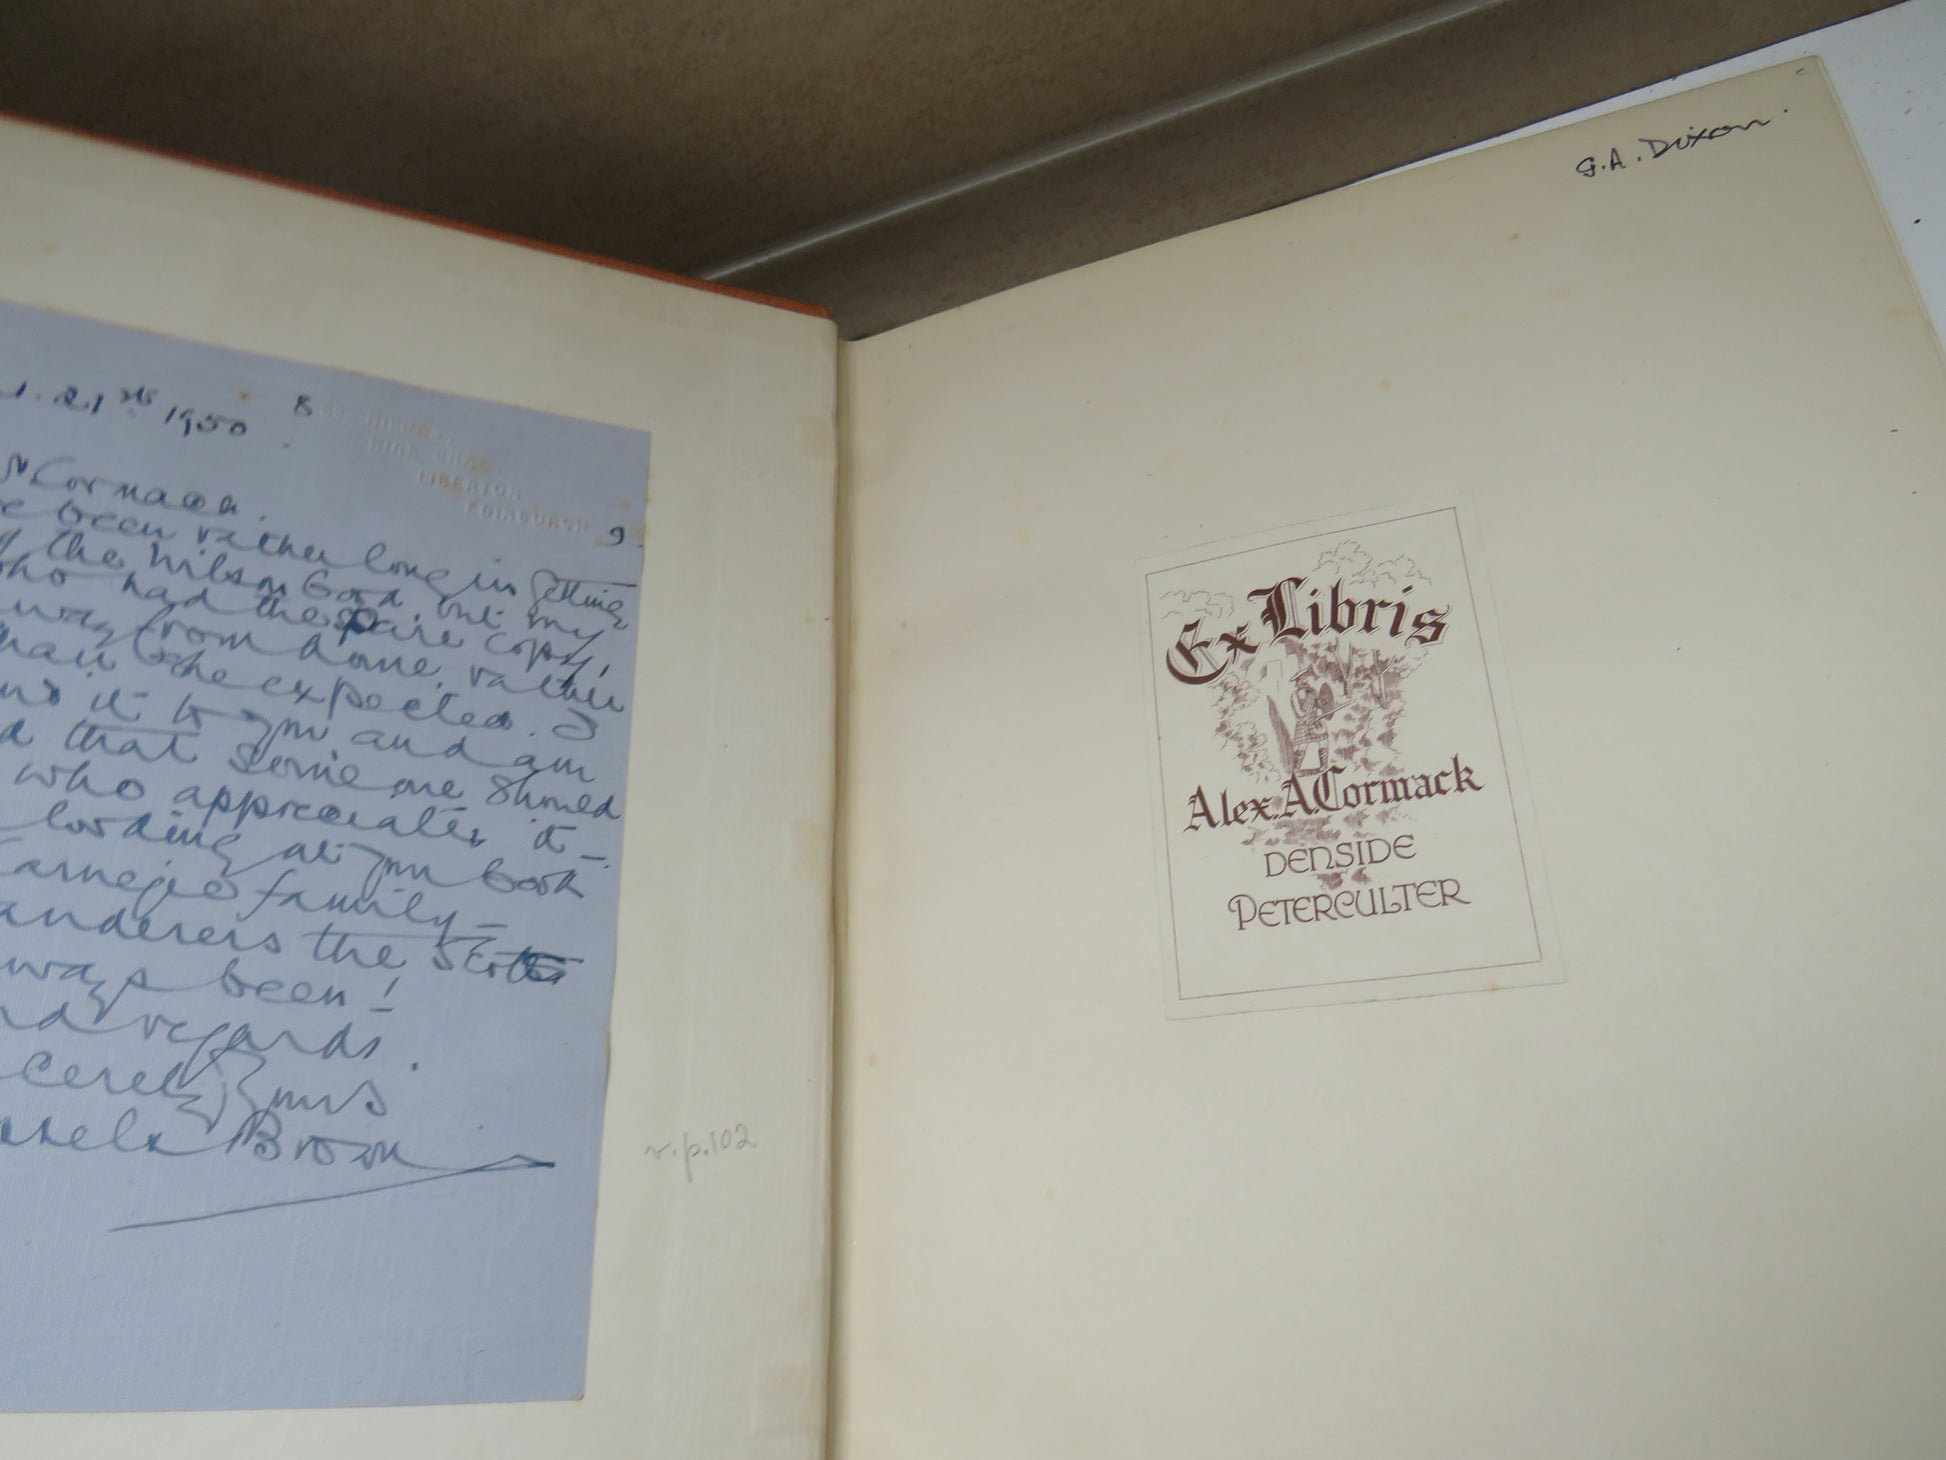 21st 1950
8
KIRK BRAE
LIBERTON
EDINBURGH 9.
Cormack.
been rather long in getting
the Wilson book but my
who had the spare copy,
was from home, rather
than she expected. I
it to you and am
that someone should
who appreciates it –
looking at your book
Carnegie family –
anderers the Scots
ways been!
nd regards.
cerely yours
Brown
v. p. 102
G. A. Dixon.
Ex Libris
Alex. A. Cormack
DENSIDE
PETERCULTER